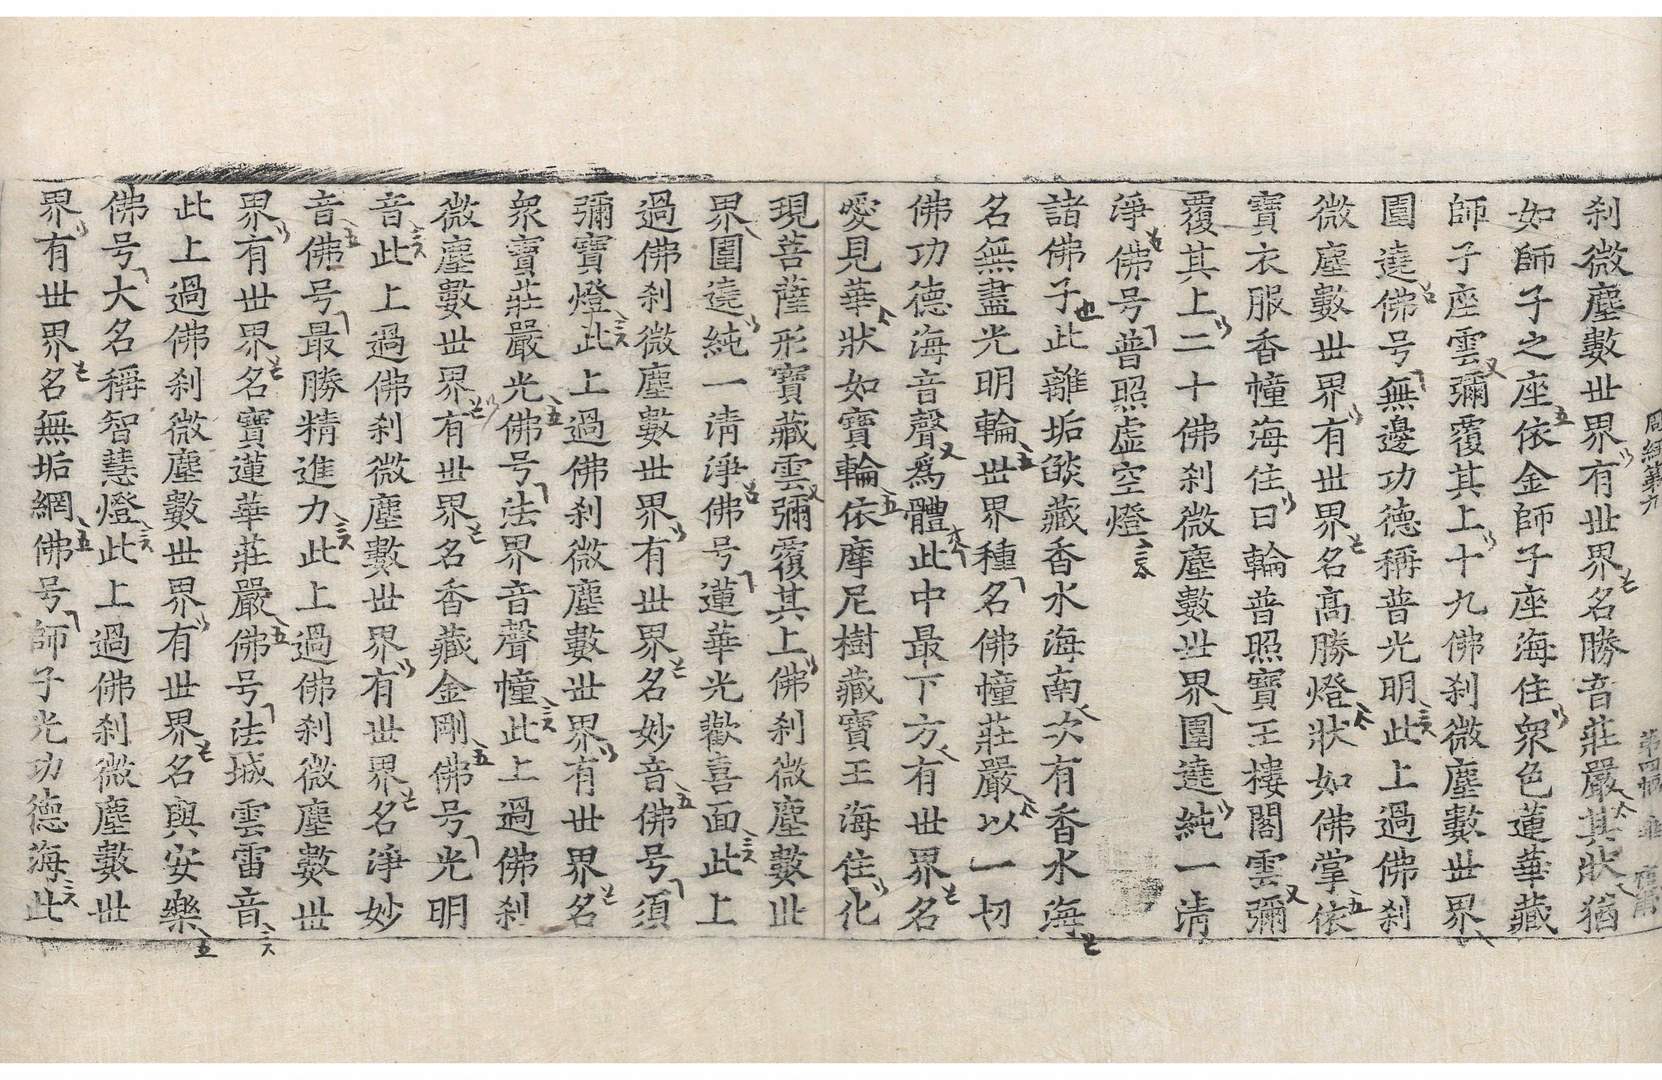 周經第九
刹微塵數世界有世界名勝音莊嚴其狀猶
如師子之座依金師子座海住衆色蓮華藏
師子座雲彌覆其上十九佛刹微塵數世界
圍遶佛号無邊功德稱普光明此上過佛刹
微塵數世界有世界名高勝燈狀如佛掌依
寶衣服香幢海住日輪普照寶王樓閣雲彌
覆其上二十佛刹微塵數世界圍遶純一清
淨佛号普照虛空燈
諸佛子此離垢焰藏香水海南次有香水海
名無盡光明輪世界種名佛幢莊嚴以一切
佛功德海音聲爲體此中最下方有世界名
愛見華狀如寶輪依摩尼樹藏寶王海住化
現菩薩形寶藏雲彌覆其上佛刹微塵數世
界圍遶純一清淨佛号蓮華光歡喜面此上
過佛刹微塵數世界有世界名妙音佛号須
彌寶燈此上過佛刹微塵數世界有世界名
衆寶莊嚴光佛号法界音聲幢此上過佛刹
微塵數世界有世界名香藏金剛佛号光明
音此上過佛刹微塵數世界有世界名淨妙
音佛号最勝精進力此上過佛刹微塵數世
界有世界名寶蓮華莊嚴佛号法城雲雷音
此上過佛刹微塵數世界有世界名與安樂
佛号大名稱智慧燈此上過佛刹微塵數世
界有世界名無垢網佛号師子光功德海此